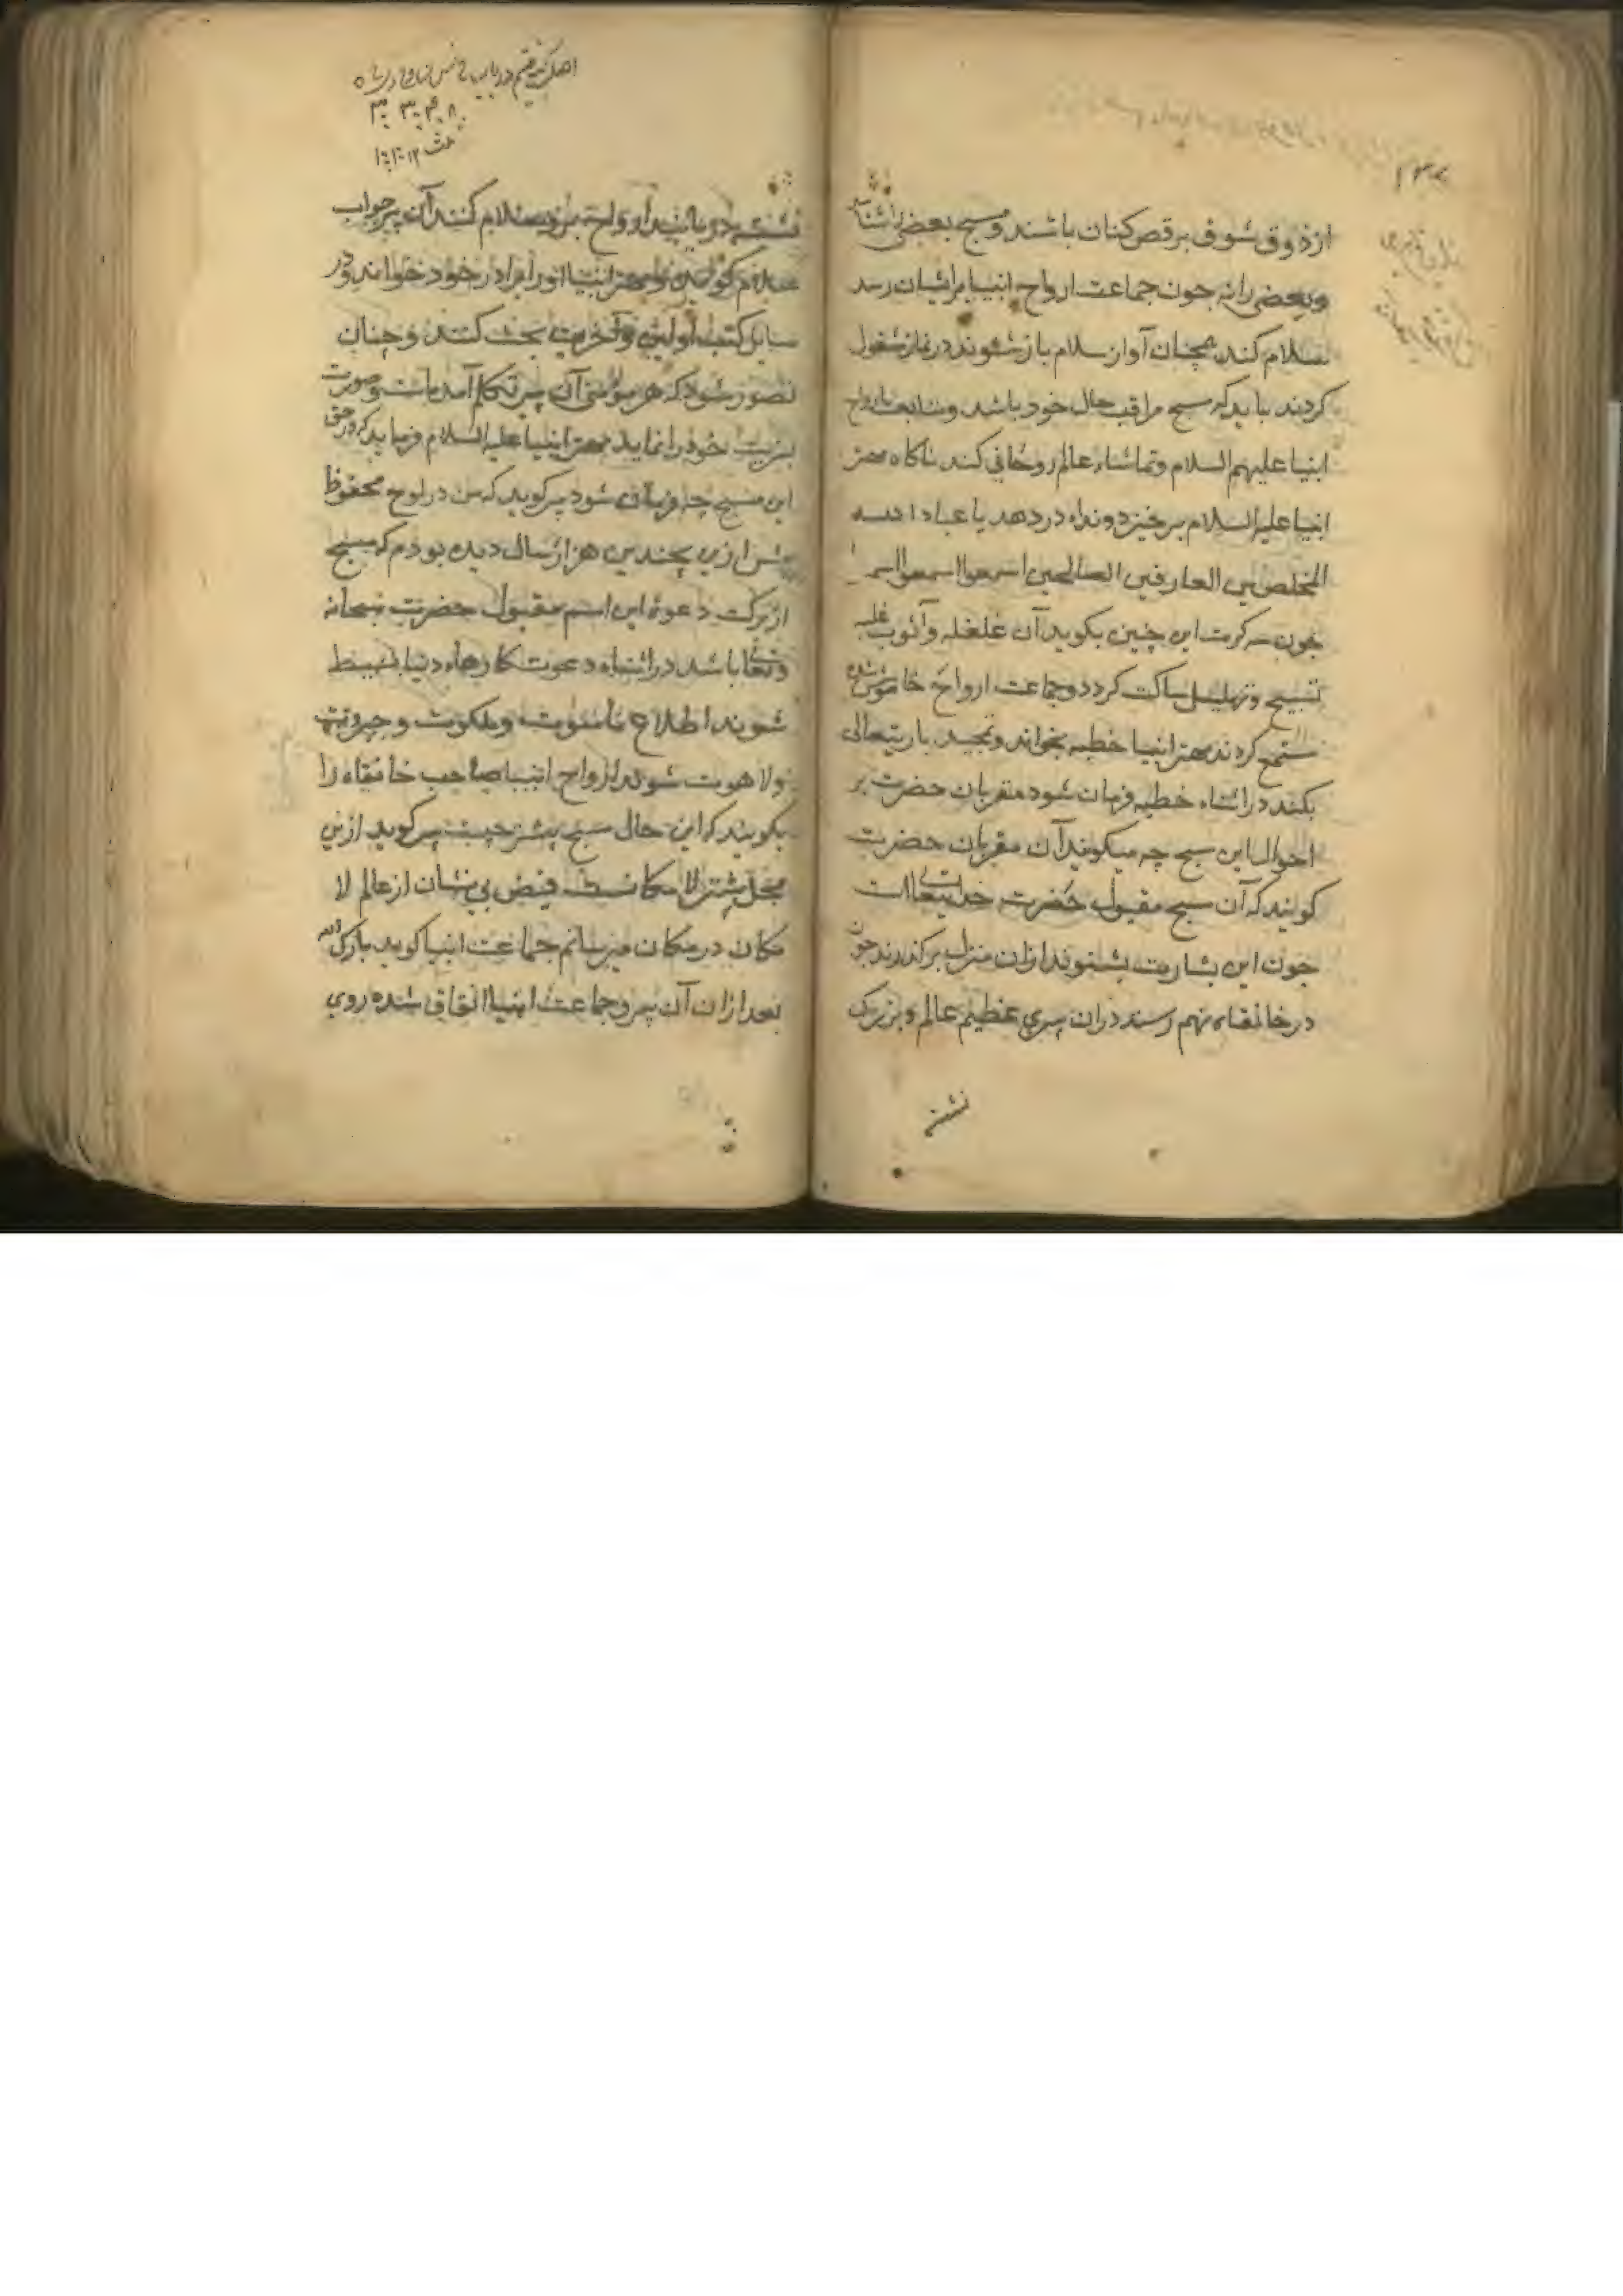 از ذوق شوق برقص کنان باشند و مسبح بعضی را شناسد
و بعضی را نه جون جماعت ارواح انبیا برایشان رسد
سلام کند همچنان آواز سلام باز شنوند در نماز مشغول
کردند باید که مسبح مراقب حال خود باشد و متابعت ارواح
انبیا علیهم السلام و تماشاء عالم روحانی کند ناکاه مهتر
انبیا علیه السلام برخیزد و نداء در دهد یا عباد الله
المخلصین العارفین الصالحین اسمعوا اسمعوا
جون سه کرت این چنین بکوید آن غلغله و آشوب غلبه
تسبیح و تهلیل ساکت کردد و جماعت ارواح خاموش شده
مستمع کردند مهتر انبیا خطبه بخواند و تمجید باریتعالی
بکند در اثناء خطبه فرمان شود مقربان حضرت بر
احوال این مسبح چه میکویند آن مقربان حضرت
کویند که آن مسبح مقبول حضرت خدایتعالی است
جون این بشارت بشنوند ازان منزل برکذرند جون
در خانقاه نهم رسند دران پیری عظیم عالم و بزرک
نشسته
نشسته در یابند ارواح بروی سلام کنند آن پیر جواب
سلام کوید و مهتر انبیا او را برادر خود خواند و در
مسایل کتب اولین و آخرین بحث کنند و چنان
تصور شود که هر موئی آن پیر تکلم آمده است و صورت
خود را نماید مهتر انبیا علیه السلام فرماید که در حق
این مسبح چه فرمان شود پیر کوید که من در لوح محفوظ
پیش ازین چندین هزار سال دیده بودم که مسبح
از برکت دعوة این اسم مقبول حضرت سبحانه
و تعالی باشد در اثناء دعوت کارهاء دنیا
شوند اطلاع ناسوت و ملکوت و جبروت
و لاهوت شوند ارواح انبیا صاحب خانقاه را
بکویند که این حال مسبح بیشتر چیست پیر کوید ازین
محل بیشتر لا مکانست فیض بی نشان از عالم لا
مکان در مکان میرسانم جماعت انبیا کوید بارک الله
بعد ازان آن پیر و جماعت انبیا اتفاق شده روی